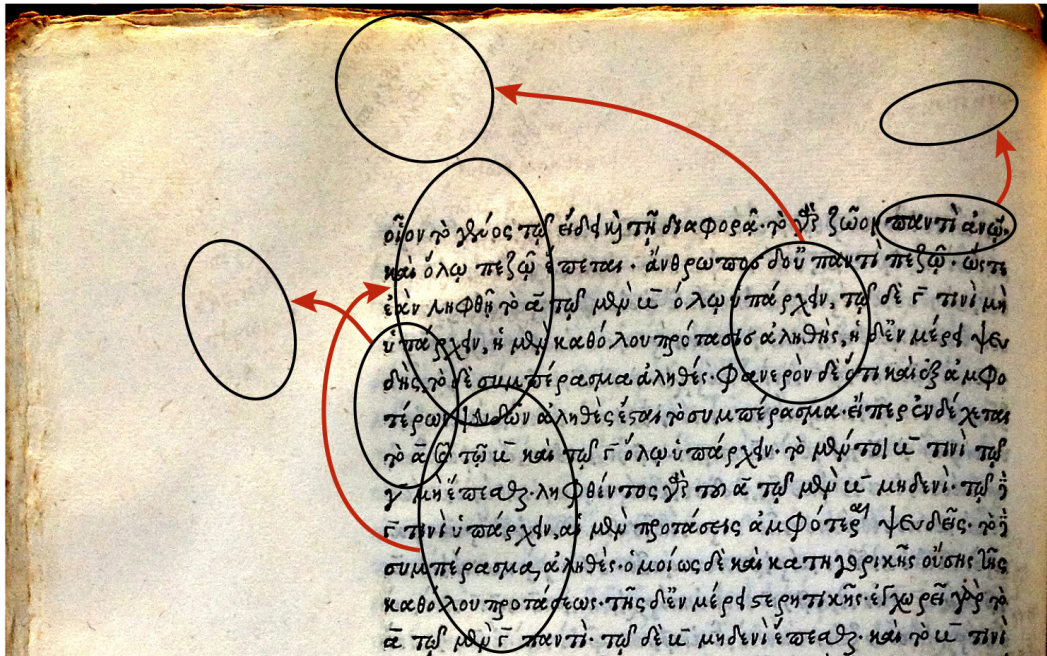 οἷον τὸ γένος τῷ εἴδει καὶ τῇ διαφορᾷ· τὸ γὰρ ζῶον παντὶ ἀνῷ·
καὶ ὅλῳ πεζῷ ἕπεται· ἄνθρωπος δ' οὐ παντὶ πεζῷ· ὥστε
ἐὰν ληφθῇ τὸ ᾱ τῷ μὲν β̄ ὅλῳ ὑπάρχειν, τῷ δὲ γ̄ τινὶ μὴ
ὑπάρχειν, ἡ μὲν καθόλου πρότασις ἀληθής, ἡ δ' ἐν μέρει ψευ
δής, τὸ δὲ συμπέρασμα ἀληθές· φανερὸν δὲ ὅτι καὶ ἐξ ἀμφο
τέρων ψευδῶν ἀληθὲς ἔσται τὸ συμπέρασμα· εἴπερ ἐνδέχεται
τὸ ᾱ καὶ τῷ β̄ καὶ τῷ γ̄ ὅλῳ ὑπάρχειν· τὸ μέντοι β̄ τινὶ τῷ
γ̄ μὴ ἕπεσθαι· ληφθέντος γὰρ τοῦ ᾱ τῷ μὲν β̄ μηδενί· τῷ δὲ
γ̄ τινὶ ὑπάρχειν, αἱ μὲν προτάσεις ἀμφότεραι ψευδεῖς· τὸ δὲ
συμπέρασμα, ἀληθές· ὁμοίως δὲ καὶ κατηγορικῆς οὔσης τῆς
καθόλου προτάσεως· τῆς δ' ἐν μέρει στερητικῆς· ἐγχωρεῖ γὰρ τὸ
ᾱ τῷ μὲν γ̄ παντί· τῷ δὲ β̄ μηδενὶ ἕπεσθαι· καὶ τὸ β̄ τινὶ